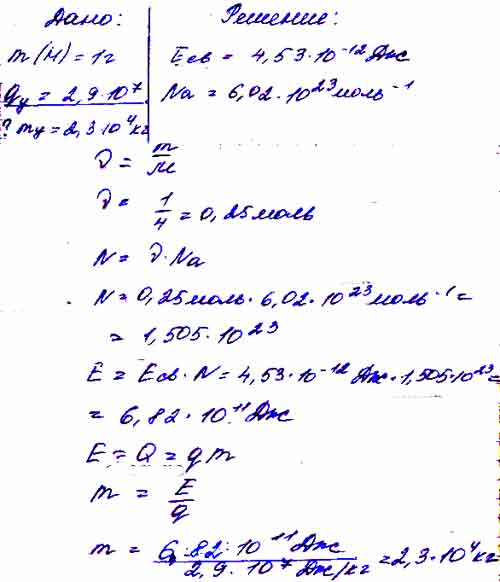 Дано:
m(Н) = 1г
qу = 2,9·10⁷
? mу = 2,3·10⁴кг
Решение:
Eсв = 4,53·10⁻¹² Дж
Na = 6,02·10²³ моль⁻¹
ν = m/M
ν = 1/4 = 0,25 моль
N = ν·Na
N = 0,25 моль · 6,02·10²³ моль⁻¹ =
= 1,505·10²³
E = Eсв·N = 4,53·10⁻¹² Дж · 1,505·10²³ =
= 6,82·10¹¹ Дж
E = Q = qm
m = E/q
m = 6,82·10¹¹ Дж / 2,9·10⁷ Дж/кг = 2,3·10⁴ кг